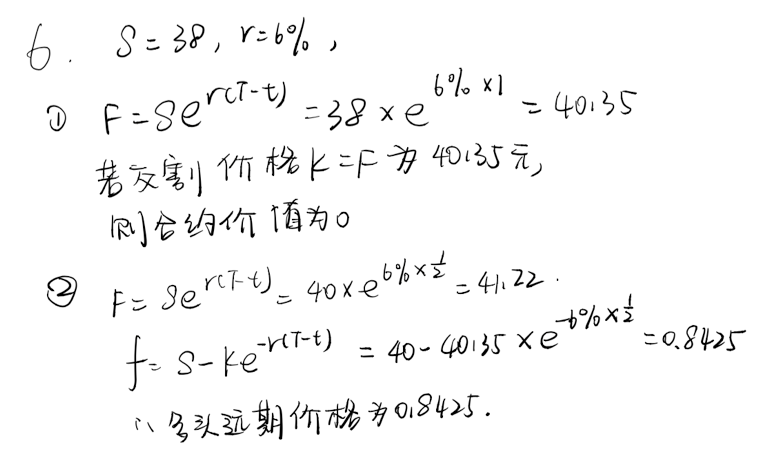 6. S=38, r=6%,
① F=Se^{r(T-t)}=38×e^{6%×1}=40.35
若交割价格K=F为40.35元,
则合约价值为0
② F=Se^{r(T-t)}=40×e^{6%×\frac{1}{2}}=41.22.
f=S-Ke^{-r(T-t)}=40-40.35×e^{-6%×\frac{1}{2}}=0.8425
∴多头远期价格为0.8425.